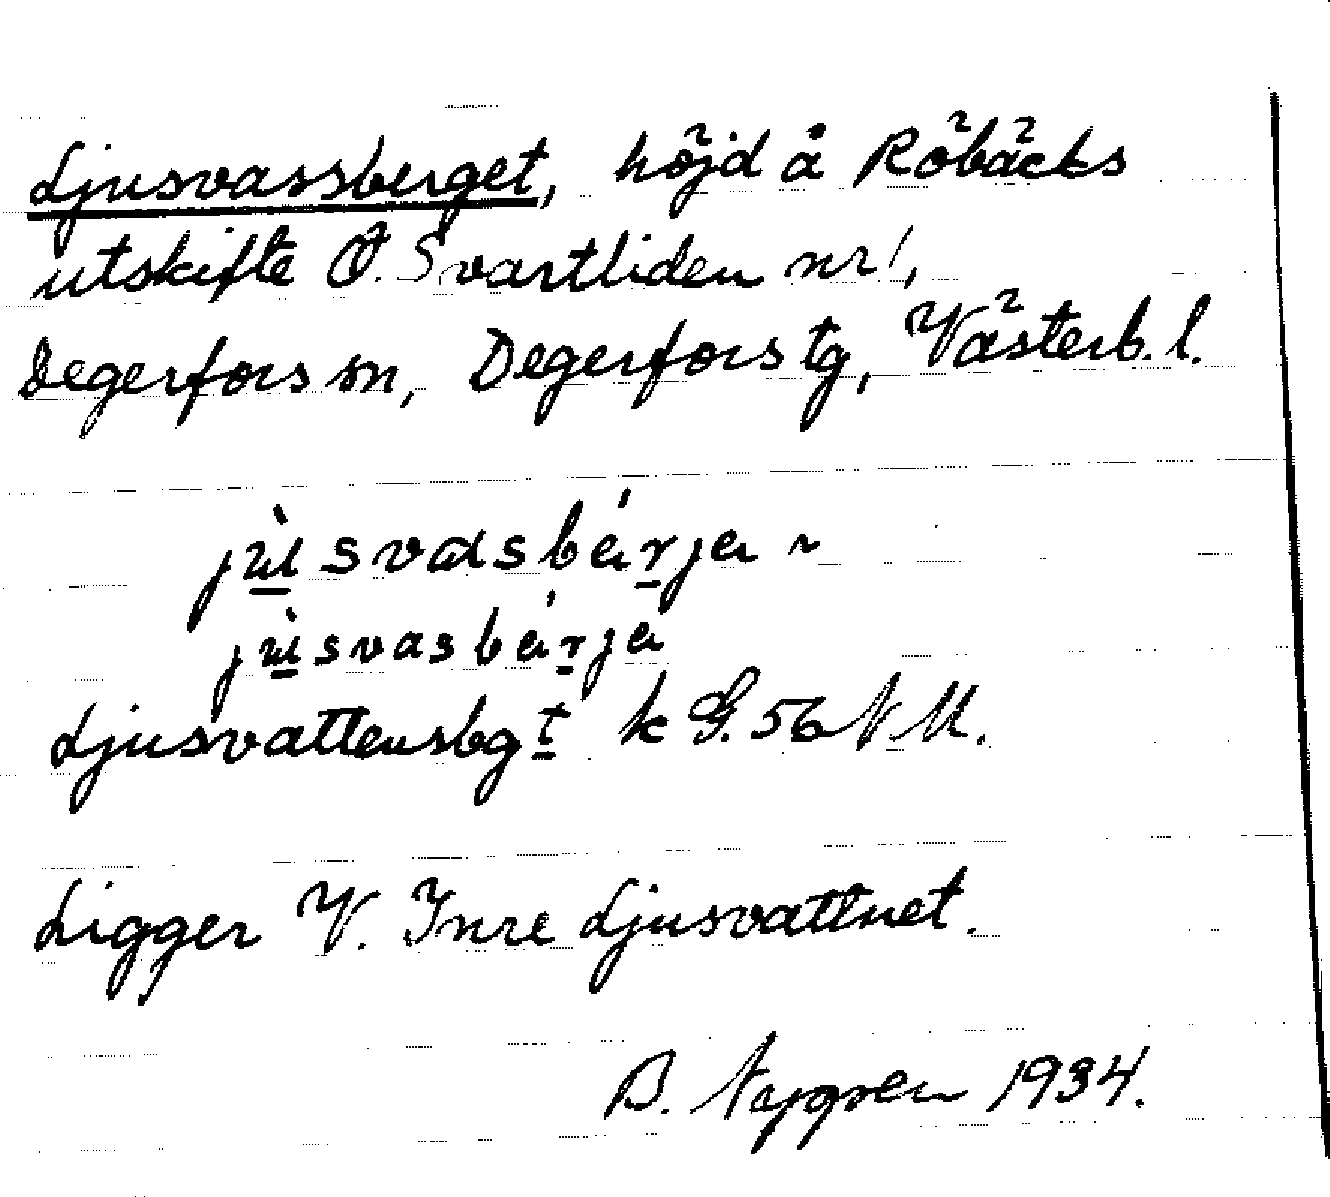 Ljusvassberget, höjd å Röbäcks
utskifte Ö. Svartliden nr 1,
Degerfors sn, Degerfors tg, Västerb. l.
jùsvasbárja ~
jùsvasbárja
Ljusvattensbgt k G. 56 N M.
Ligger V. Inre Ljusvattnet.
B. 1934.